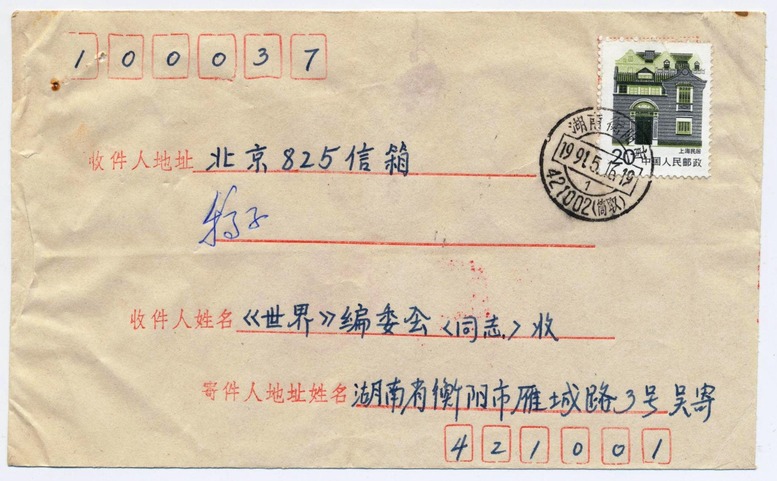 100037
上海民居
20 中国人民邮政
湖南衡阳
1991.5.16.19
1
421002(筒取)
收件人地址 北京825信箱
收件人姓名 《世界》编委会〈同志〉收
寄件人地址姓名 湖南省衡阳市雁城路3号吴寄
421001